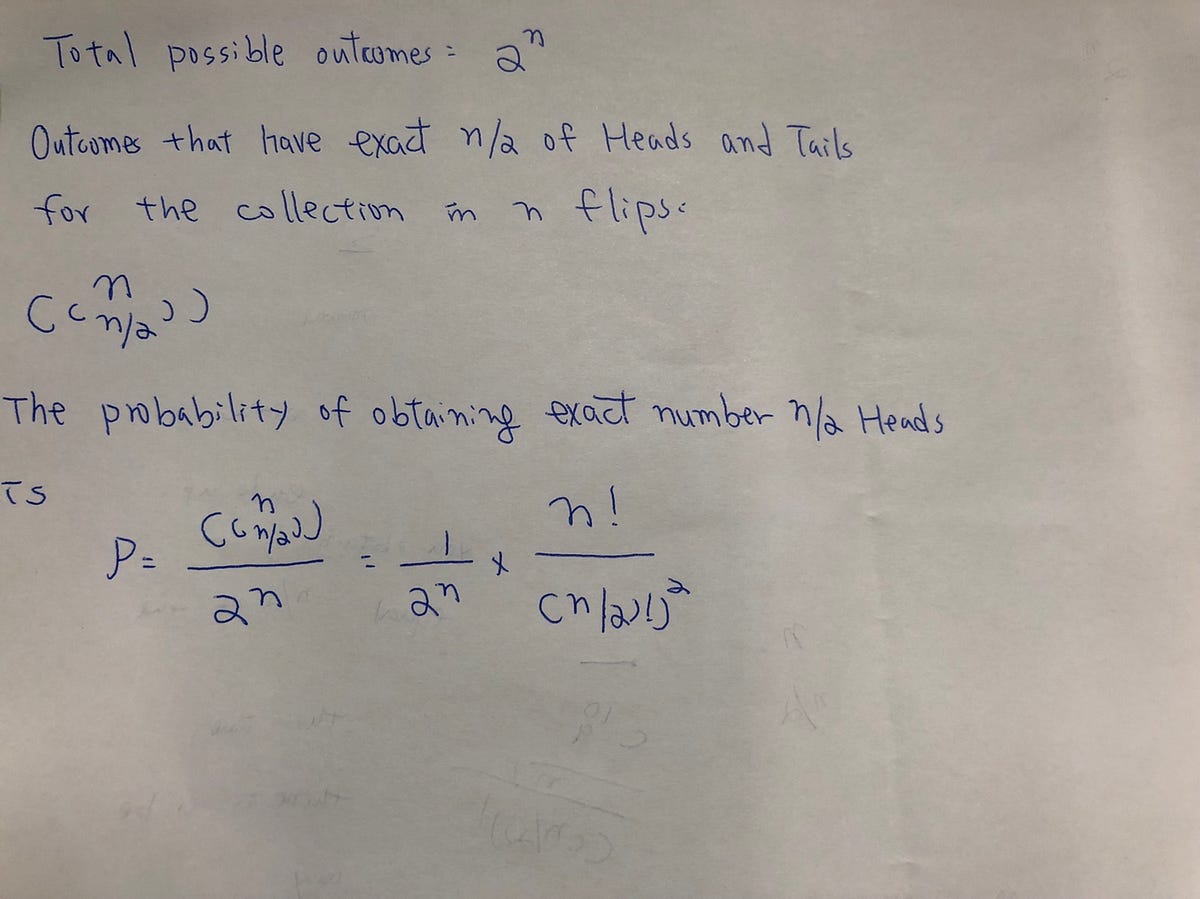 Total possible outcomes = 2^n
Outcomes that have exact n/2 of Heads and Tails
for the collection in n flips:
((n n/2))
The probability of obtaining exact number n/2 Heads
is
P = ((n n/2)) / 2^n = 1 / 2^n × n! / ((n/2)!)^2